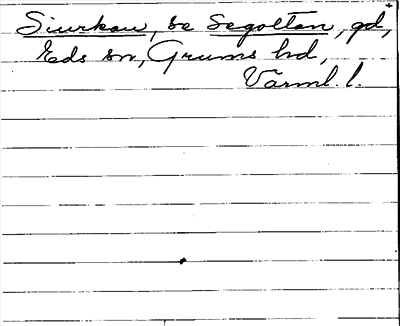 Siurkau, se Segoltan, gd,
Eds sn, Grums hd,
Värml. l.